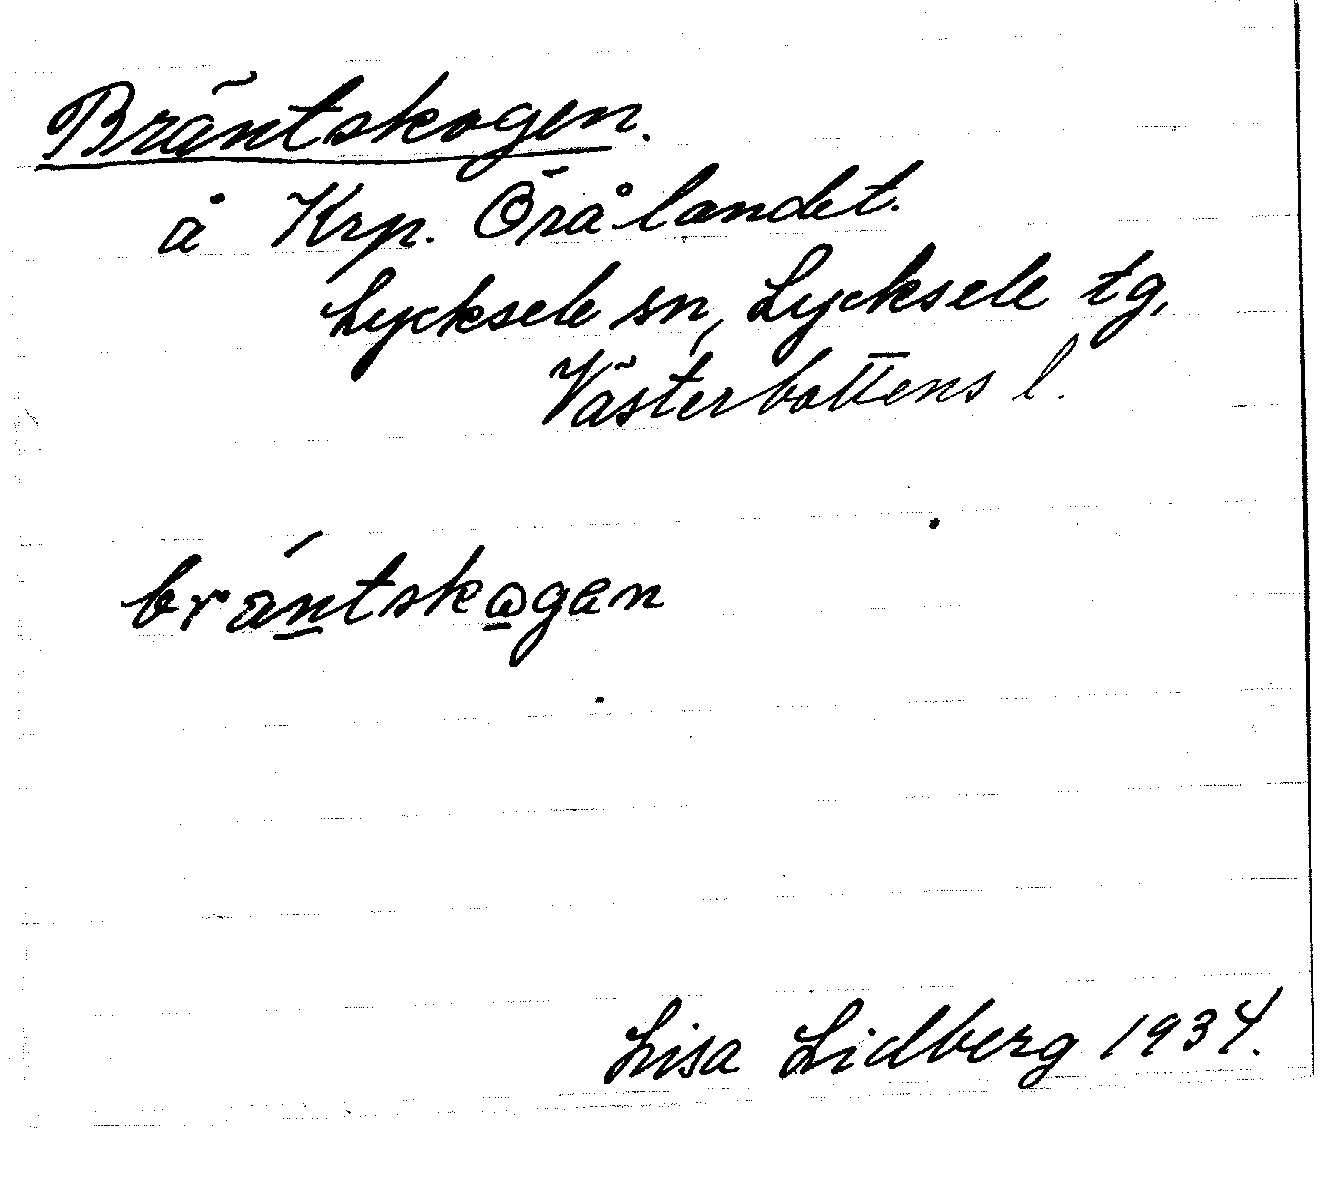 Bräntskogen.
å Krp. Örålandet.
Lycksele sn, Lycksele tg,
Västerbottens l.
bräntskogen
Lisa Lidberg 1934.